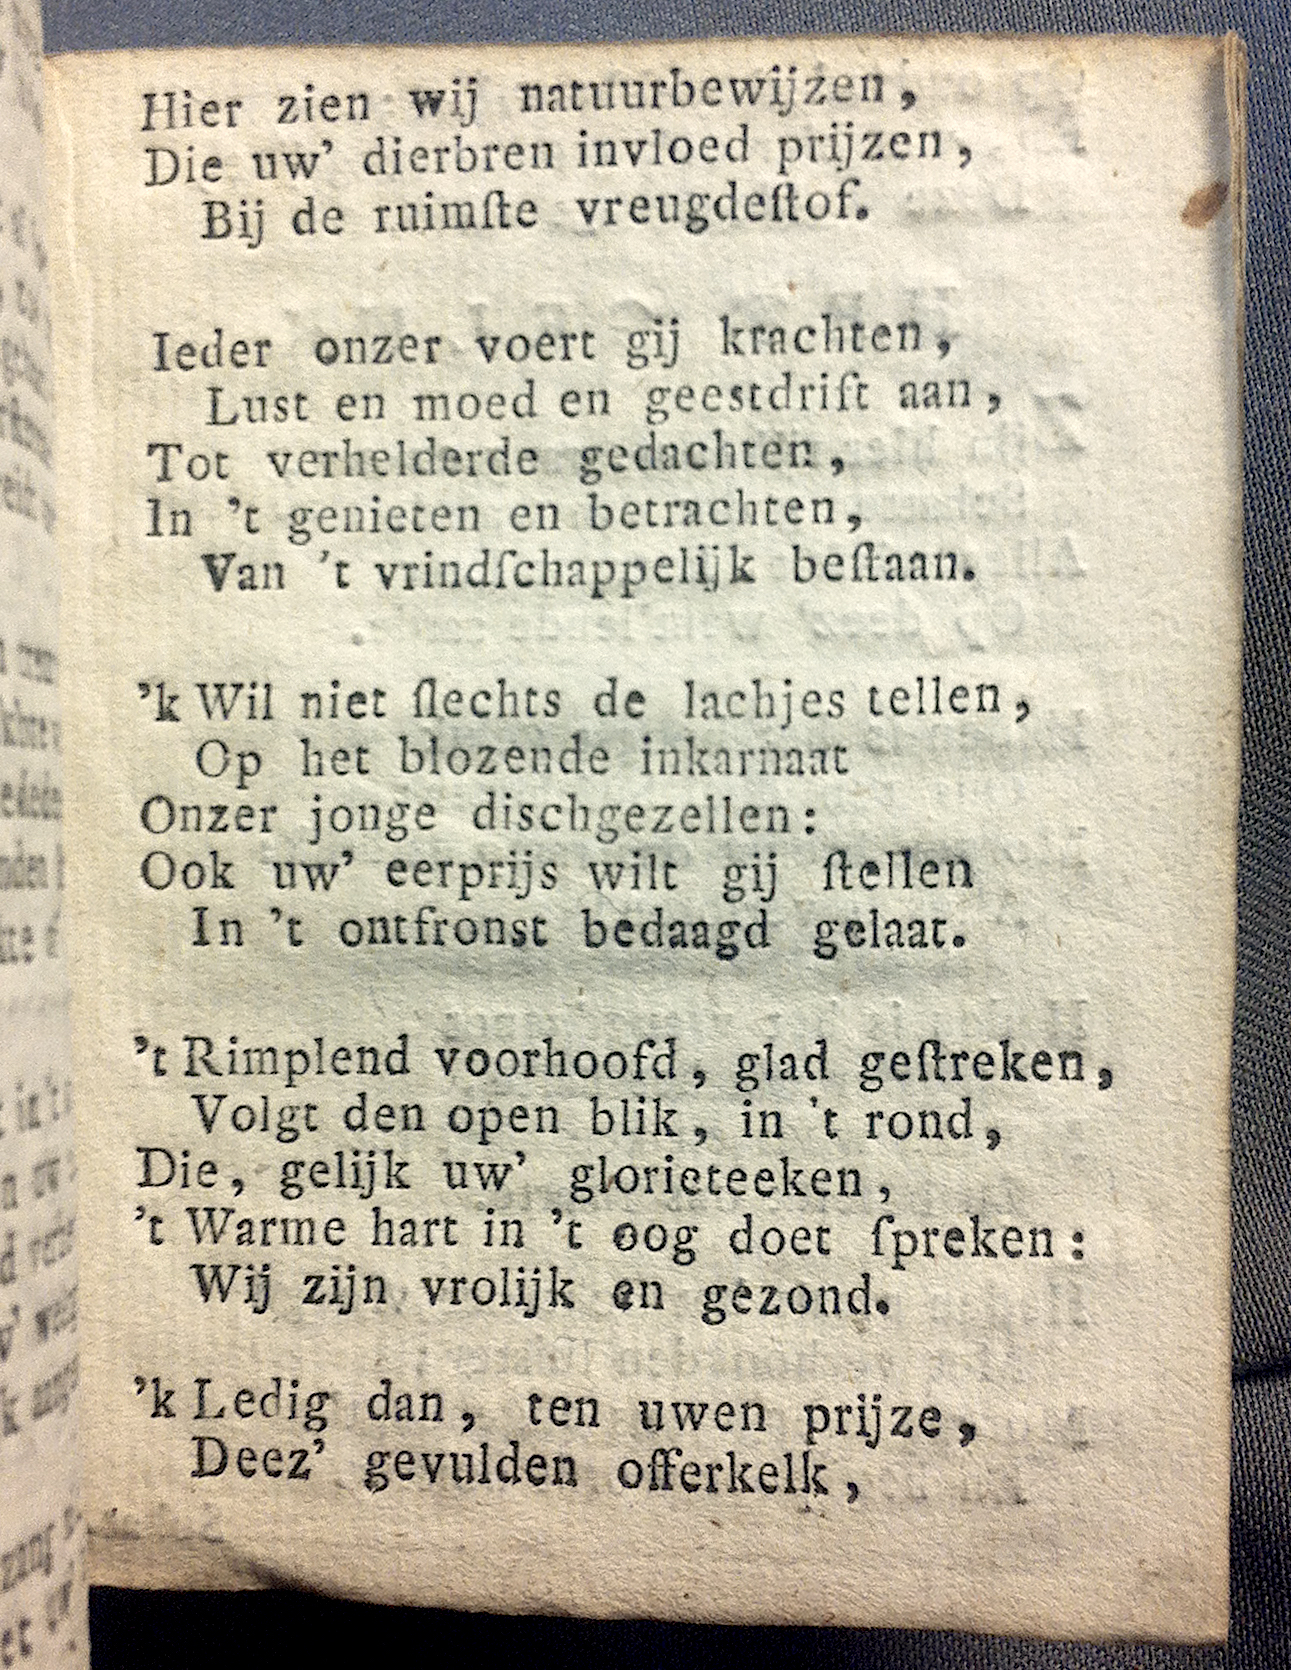 Hier zien wij natuurbewijzen,
Die uw' dierbren invloed prijzen,
Bij de ruimſte vreugdeſtof.
Ieder onzer voert gij krachten,
Lust en moed en geestdrift aan,
Tot verhelderde gedachten,
In 't genieten en betrachten,
Van 't vrindſchappelijk beſtaan.
'k Wil niet ſlechts de lachjes tellen,
Op het blozende inkarnaat
Onzer jonge dischgezellen:
Ook uw' eerprijs wilt gij ſtellen
In 't ontfronst bedaagd gelaat.
't Rimplend voorhoofd, glad geſtreken,
Volgt den open blik, in 't rond,
Die, gelijk uw' glorieteeken,
't Warme hart in 't oog doet ſpreken:
Wij zijn vrolijk en gezond.
'k Ledig dan, ten uwen prijze,
Deez' gevulden offerkelk,